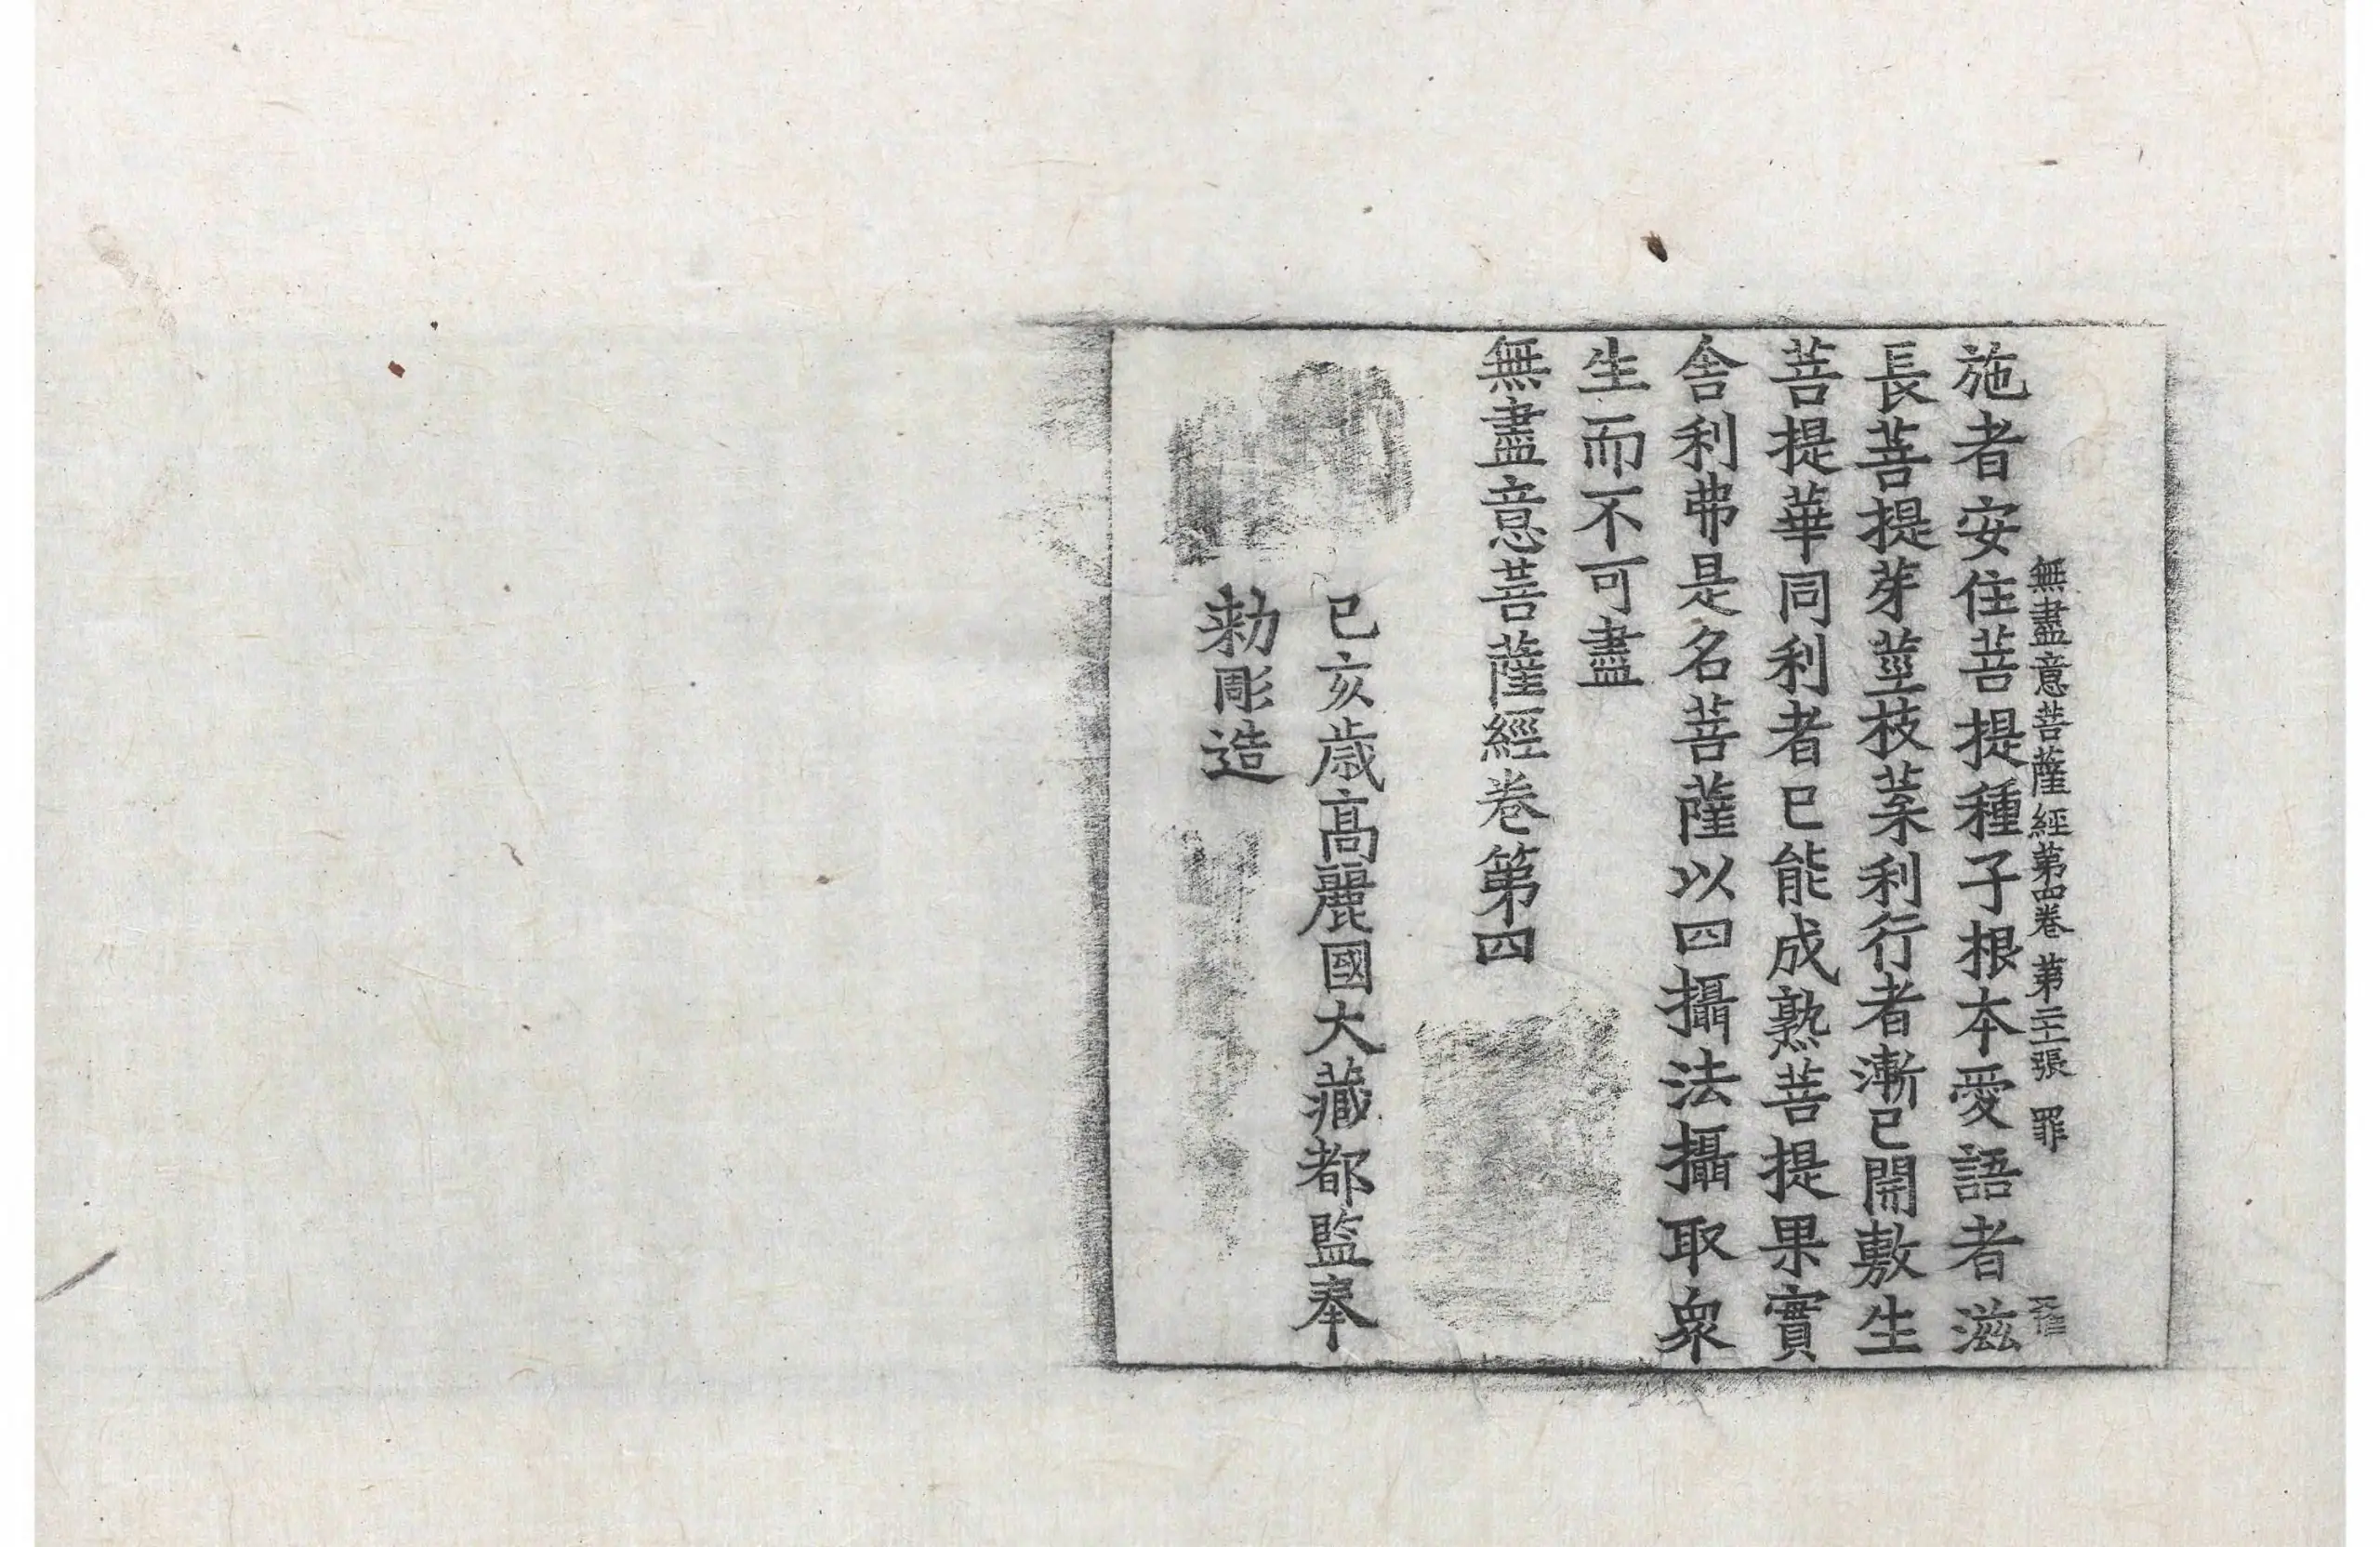 無盡意菩薩經第四卷 第二十張 罪
施者安住菩提種子根本愛語者滋
長菩提芽莖枝葉利行者漸已開敷生
菩提華同利者已能成熟菩提果實
舍利弗是名菩薩以四攝法攝取衆
生而不可盡
無盡意菩薩經卷第四
己亥歲高麗國大藏都監奉
勅彫造